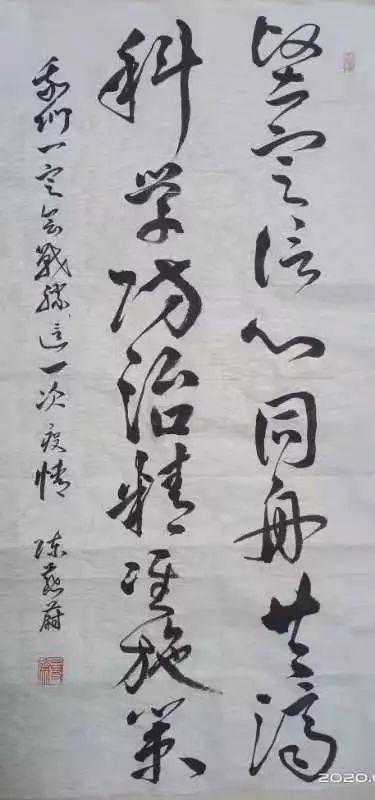 坚定信心同舟共济
科学防治精准施策
我们一定会战胜这一次疫情
陈燕蔚
2020.0